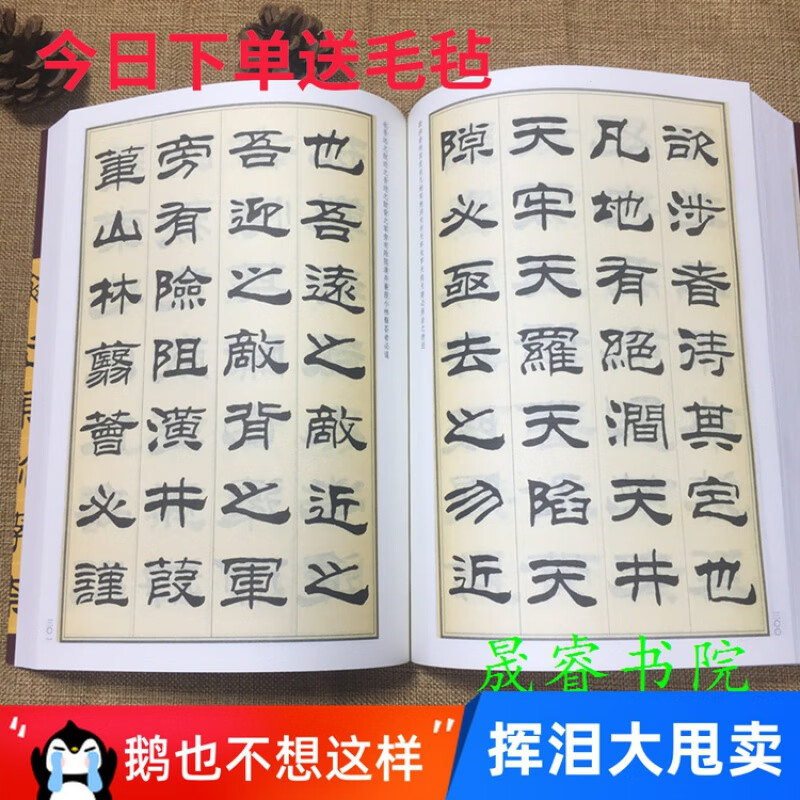 今日下单送毛毡
欲涉者待其定也
凡地有絕澗天井
天牢天羅天陷天
隙必亟去之勿近
三〇〇
也吾遠之敵近之
吾迎之敵背之軍
旁有險阻潢井葭
葦山林翳薈必謹
三〇一
晟睿书院
“鹅也不想这样”
挥泪大甩卖